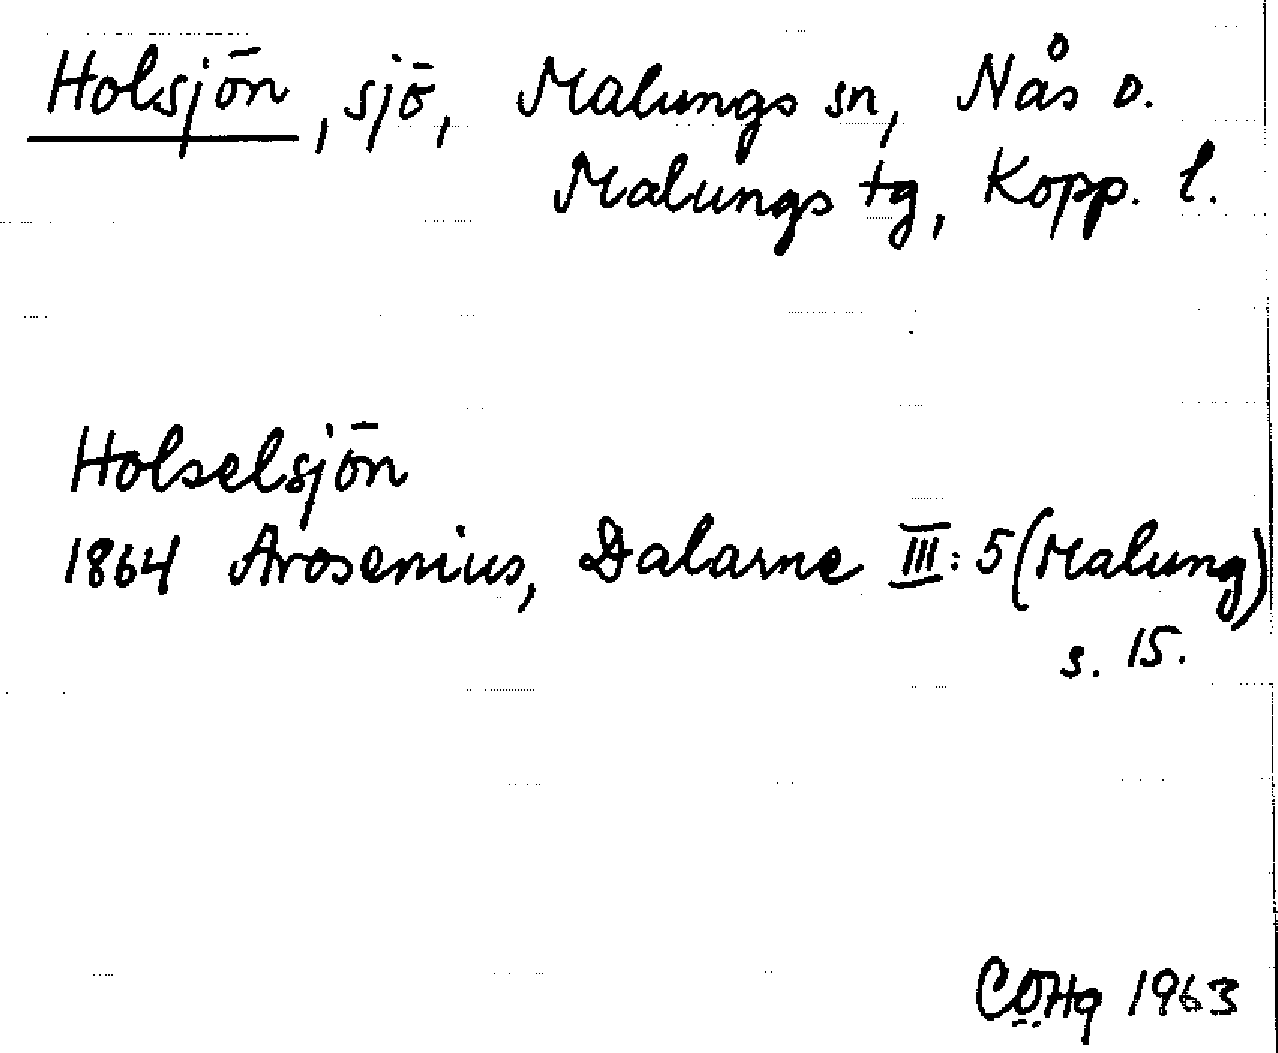 Holsjön, sjö, Malungs sn, Nås o.
Malungs tg, Kopp. l.
Holselsjön
1864 Arosenius, Dalarne III:5 (Malung)
s. 15.
CÖHg 1963